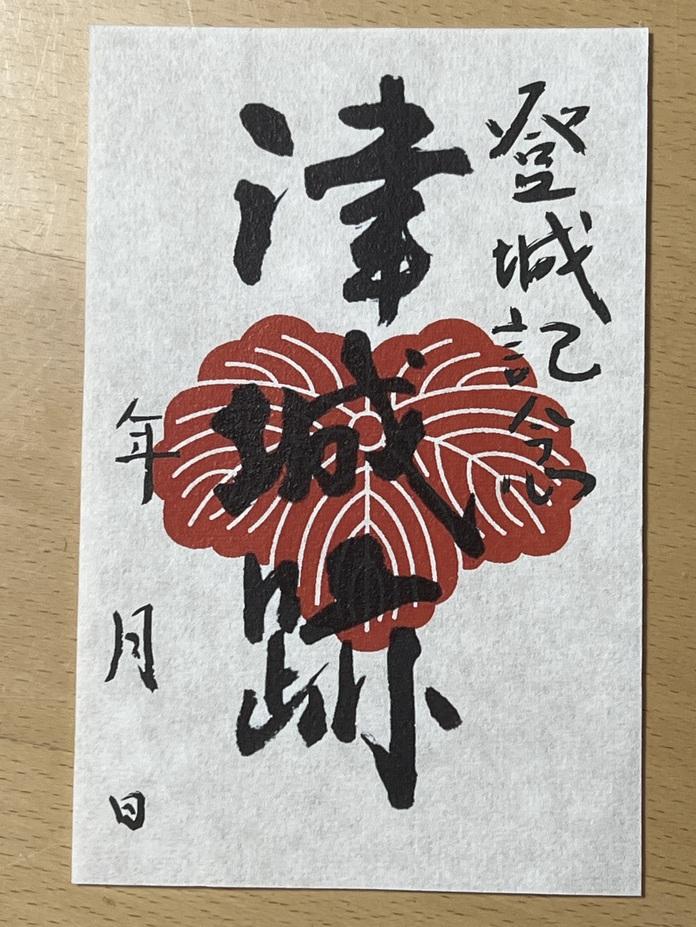 登城記念
津城跡
年月日